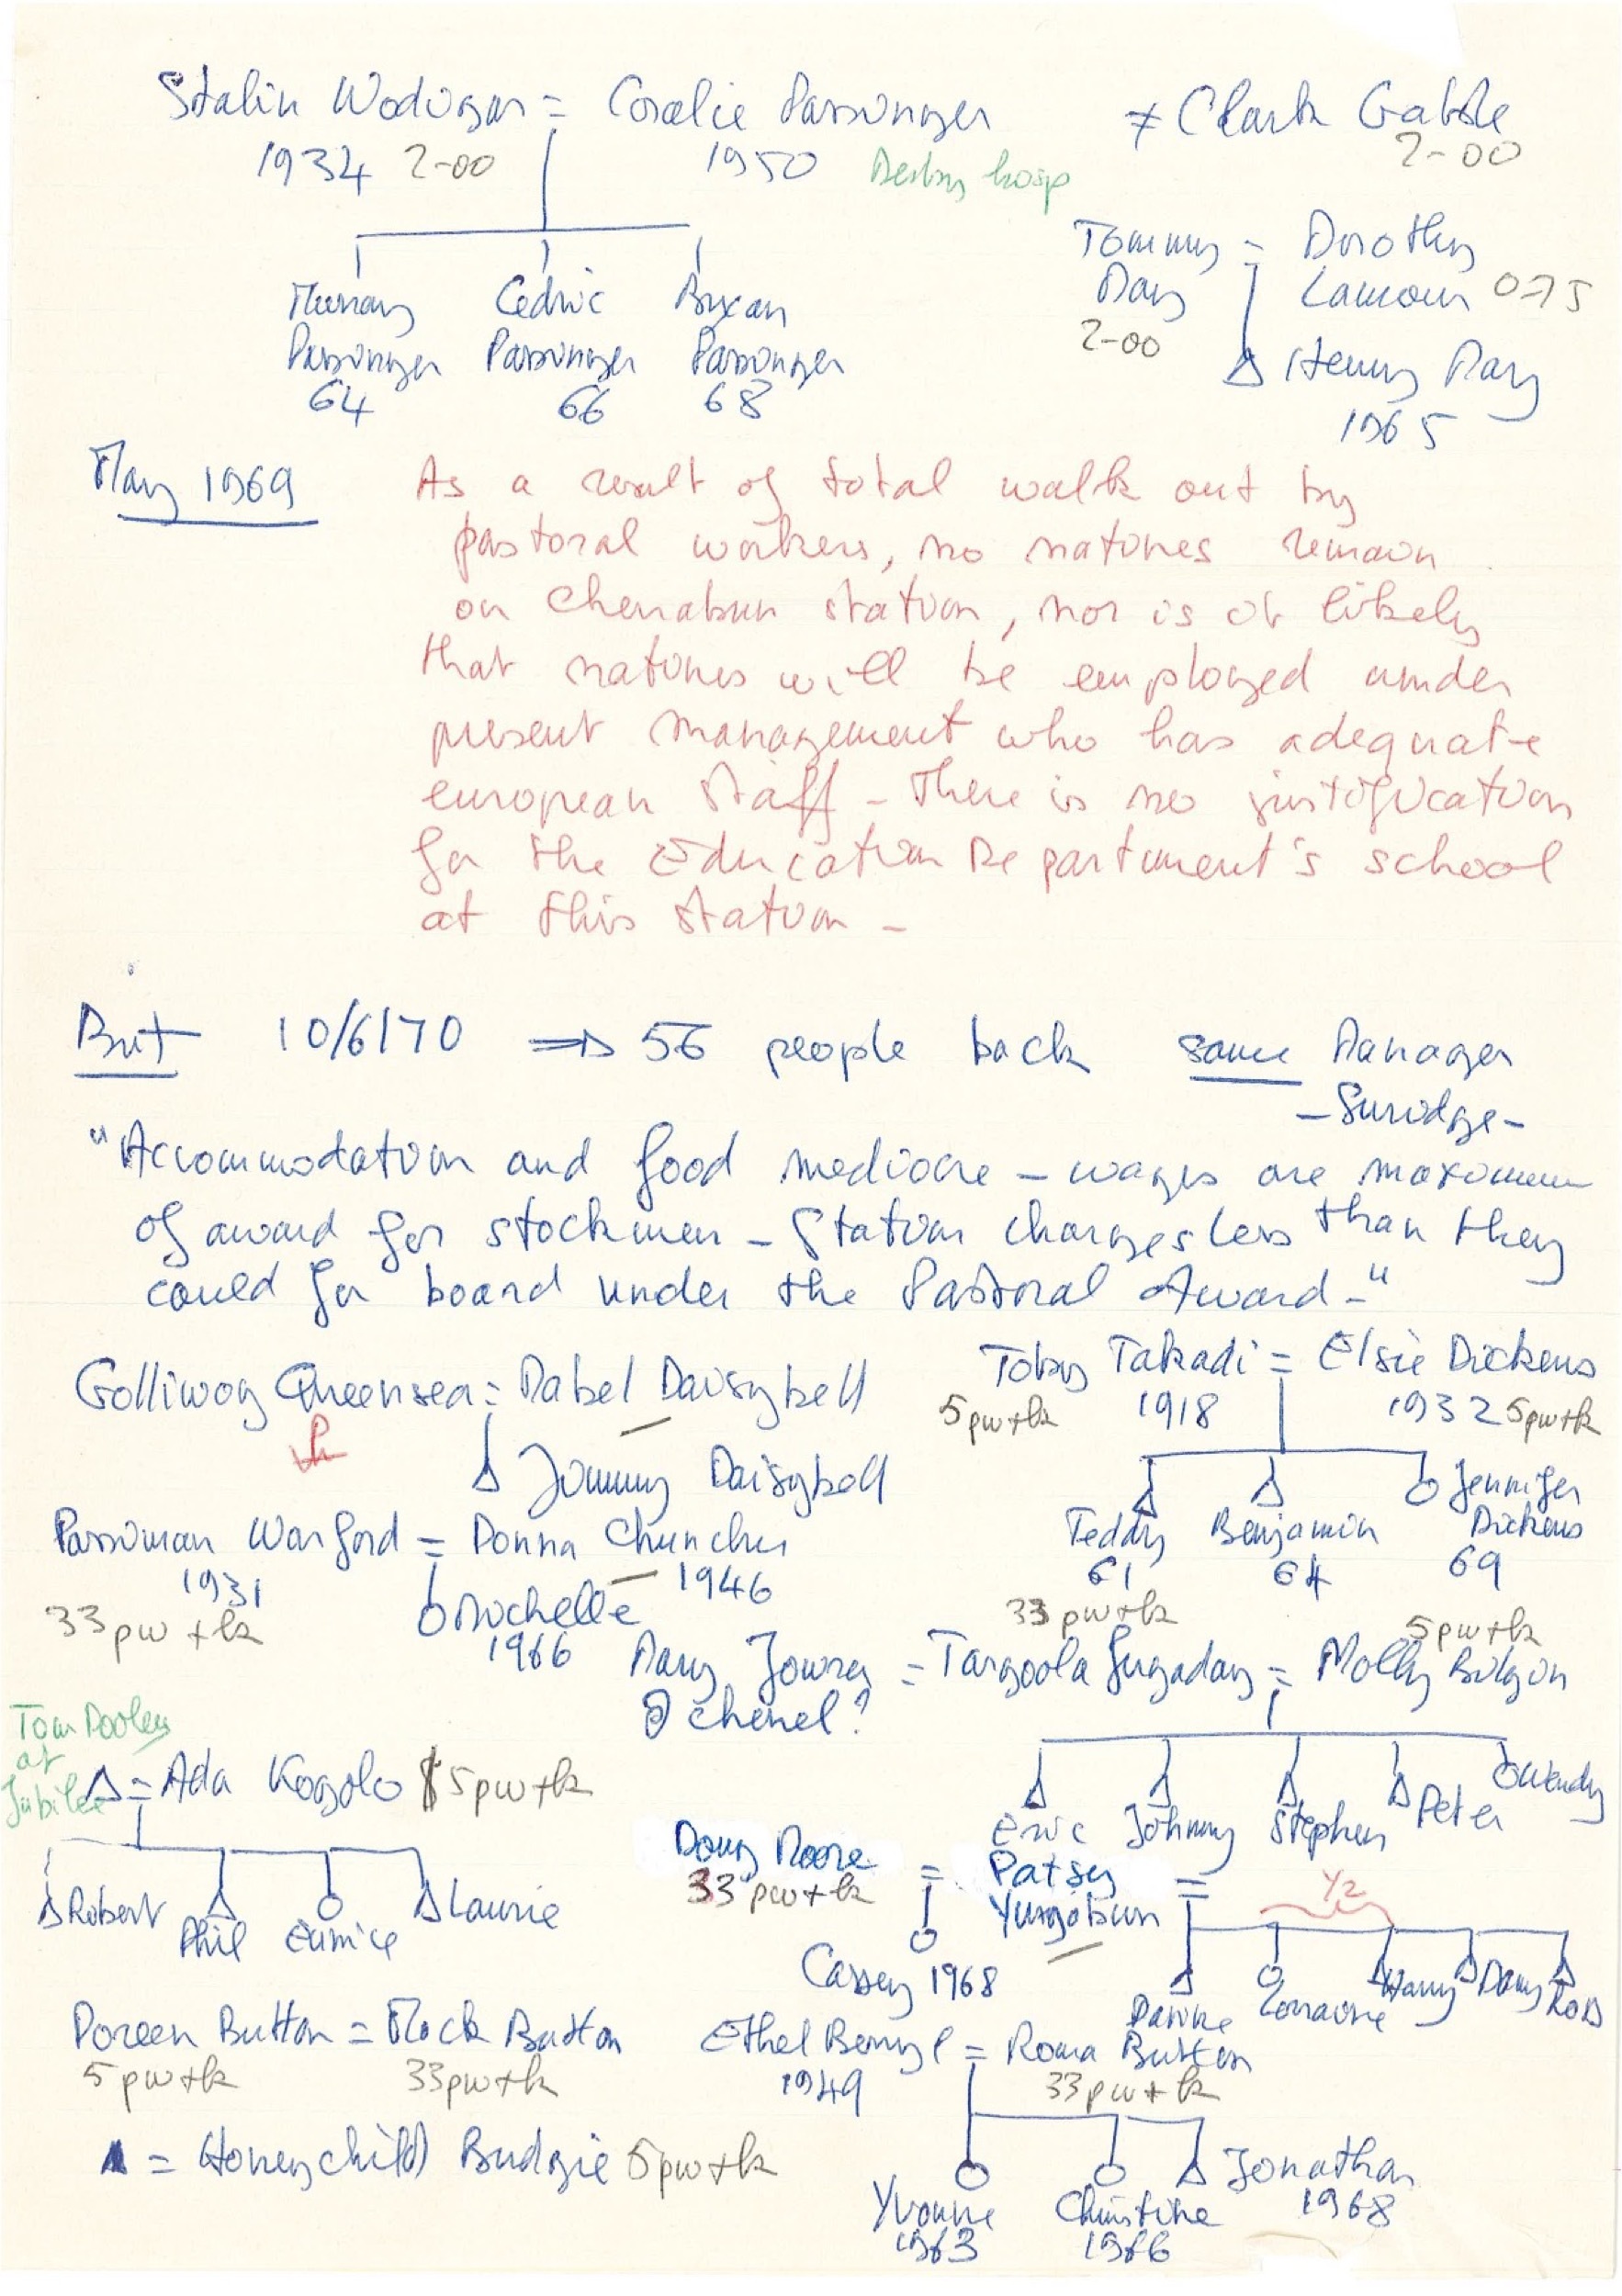 Stalin Wodigar = Coralie Passinger ≠ Clark Gable
1934 2-00 1950 Derby hosp 2-00
Tommy = Dorothy
May Lamour 0-75
2-00
Murray Cedric Bryan
Passinger Passinger Passinger
64 66 68
Δ Henry May
1965
May 1969
As a result of total walk out by
pastoral workers, no natives remain
on Cherrabun station, nor is it likely
that natives will be employed under
present management who has adequate
european staff - There is no justification
for the Education Department's school
at this station -
But 10/6/70 ⇒ 56 people back same Manager
- Suridge -
"Accommodation and food mediocre - wages are maximum
of award for stockmen - Station charges less than they
could for board under the Pastoral Award -"
Golliwog Queensea = Mabel Daisybell
Δ Jimmy Daisybell
Toby Takadi = Elsie Dickens
5pw+k 1918 1932 5pw+k
Teddy Benjamin Jennifer
Dickens
61 64 69
Passiman Warford = Donna Chunchu
1931 1946
33pw+k
Michelle
1966
33pw+k 5pw+k
Mary Jowrey = Targoola Jugaday = Molly Bilgin
chenel?
Eric Johnny Stephen Peter Wendy
Tom Dooley
at
Jubilee
Δ = Ada Kogolo $5pw+k
Robert Phil Eunice Laurie
Doug Moore = Patsy
33pw+k Yungabun =
Y2
Cassey 1968
Lorraine Harry Danny Rob
Doreen Button = Mick Button
5pw+k 33pw+k
Ethel Beryl = Roma Button
1949 33pw+k
Δ = Honeychild Budgie 5pw+k
Yvonne Christine Jonathan
1963 1966 1968